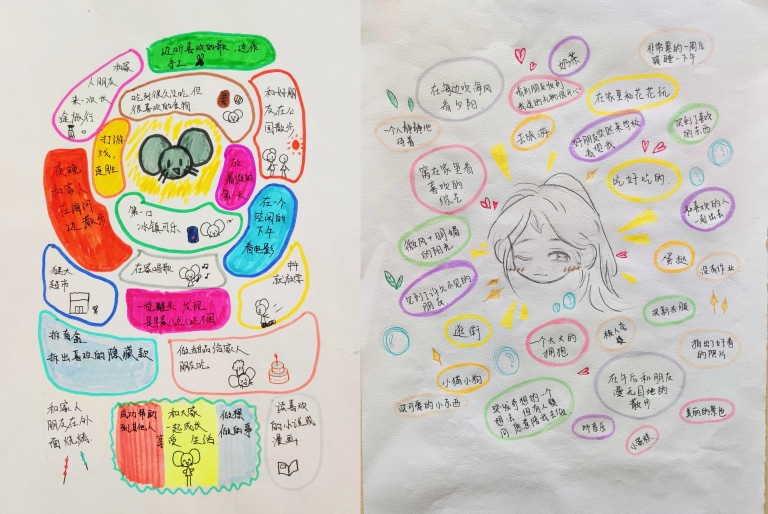 边听喜欢的歌,边做
手工
和家
人朋友
来一次长
途旅行
吃到很久没吃,但
很喜欢的食物
和好朋
友在公
园散步
打游
戏,
连胜
夜晚
和家人
在海岡
边散步
第一口
冰镇可乐
在一个
悠闲的
下午
看电影
逛大
超市
在家唱歌
一觉醒来发现
是早晨
放学
拆盲盒
拆出喜欢的隐藏款
做甜品给家人
朋友吃
和家人
朋友在外
面烧烤
成功帮助
到其他人
和大家
一起成长
享受 生活
做想
做的事
读喜欢
的小说或
漫画
奶茶
非常累的一周后
睡一下午
在海边吹海风
看夕阳
看到朋友收到
我送的礼物很开心
在家里和花花玩
一个人静静地
待着
去旅游
好朋友突然来学校
看望我
买到了喜欢
的东西
窝在家里看
喜欢的
综艺
吃好吃的
和喜欢的人
一起出去
微风+明媚
的阳光
见到了许久不见的
朋友
蛋挞
没有作业
逛街
一个大大的
拥抱
买新衣服
拍出了好看
的照片
小猫小狗
可爱的小东西
突发奇想的一个
想法,但有人赞
同,愿意陪我去做
在午后和朋友
漫无目地的
散步
美丽的景色
听音乐
小蛋糕